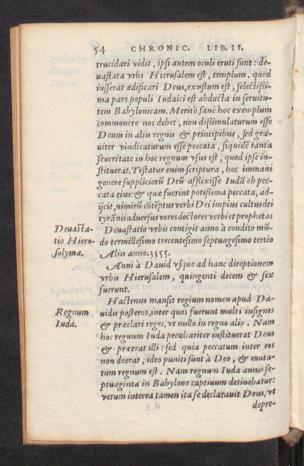 54 CHRONIC. LIB. II.
trucidari vidit, ipsi autem oculi eruti sunt: de-
uastata vrbs Hierusalem est, templum, quod
iusserat ædificari Deus, exustum est, selectissi-
ma pars populi Iudaici est abducta in seruitu-
tem Babylonicam. Meritò sanè hoc exemplum
commonere nos debet, non dissimulaturum esse
Deum in alijs regnis & principibus, sed gra-
uiter vindicaturum esse peccata, siquidē tanta
seueritate in hoc regnum vsus est, quod ipse in-
stituerat. Testatur enim scriptura, hoc immani
genere suppliciorū Deū afflixisse Iudā ob pec-
cata eius: & quæ fuerint potissima peccata, ad-
ijcit, nimirū cōtēptus verbi Dei impius cultus et
tyrānis aduersus veros doctores verbi et prophetas
Deuastatio vrbis contigit anno à condito mū-
do termillesimo trecentesimo septuagesimo tertio
Aliàs anno. 3355.
Deuastatio Hiero-
solymæ.
Anni à Dauid vsque ad hanc direptionem
vrbis Hierusalem, quingenti decem & sex
fuerunt.
Hactenus mansit regium nomen apud Da-
uidis posteros, inter quos fuerunt multi insignes
& præclari reges, vt nullo in regno alio. Nam
Regnum
Iuda.
hoc regnum Iuda peculiariter instituerat Deus
& præerat illi: sed quia peccatum inter eos
non deerat, ideo puniti sunt à Deo, & muta-
tum regnum est. Nam regnum Iuda annis se-
ptuaginta in Babylone captiuum detinebatur:
verum interea tamen ita se declarauit Deus, vt
depre-